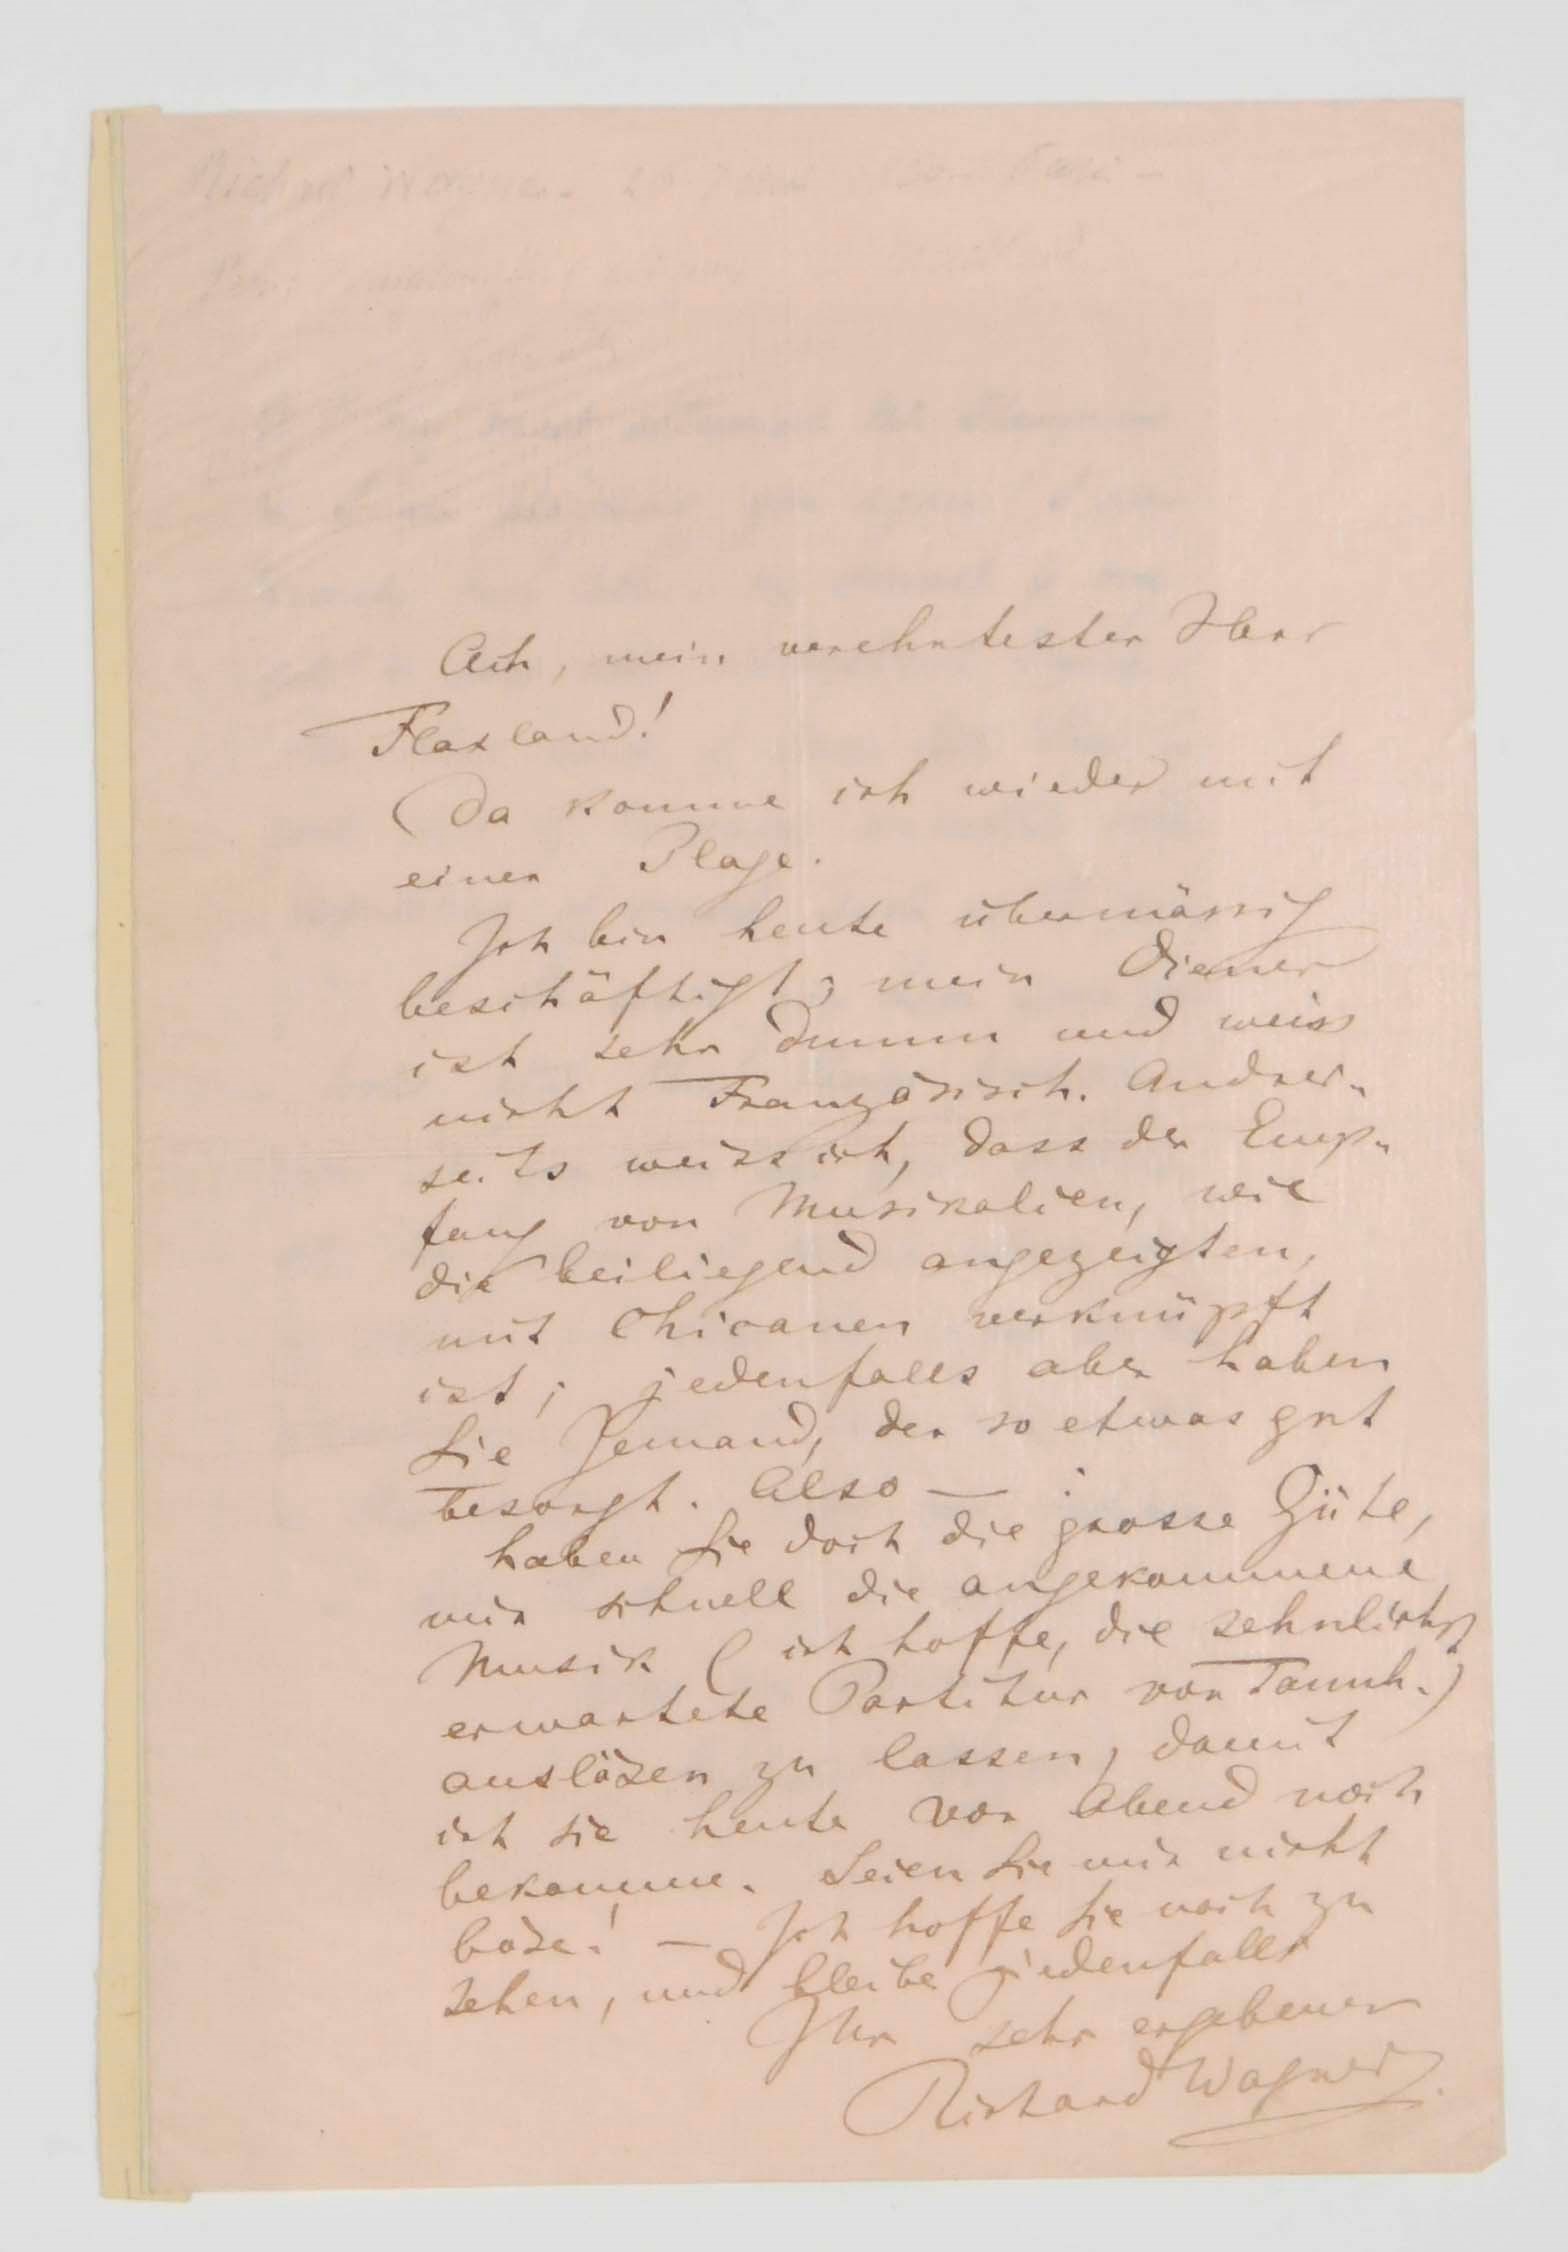 Richard Wagner
Ach, mein verehrtester Herr
Flaxland!
Da komme ich wieder mit
einer Plage.
Ich bin heute übermässig
beschäftigt; mein Diener
ist sehr dumm und weiss
nicht Französisch. Andrer-
seits weiss ich, dass der Emp-
fang von Musikalien, wie
die beiliegend angezeigten,
mit Chicanen verknüpft
ist; jedenfalls aber haben
Sie Jemand, der so etwas gut
besorgt. Also —:
haben Sie doch die grosse Güte,
mir schnell die angekommene
Musik (ich hoffe, die sehnlichst
erwartete Partitur von Tannh.)
auslösen zu lassen, damit
ich sie heute vor Abend noch
bekomme. Seien Sie mir nicht
böse! — Ich hoffe Sie noch zu
sehen, und bleibe jedenfalls
Ihr sehr ergebener
Richard Wagner.